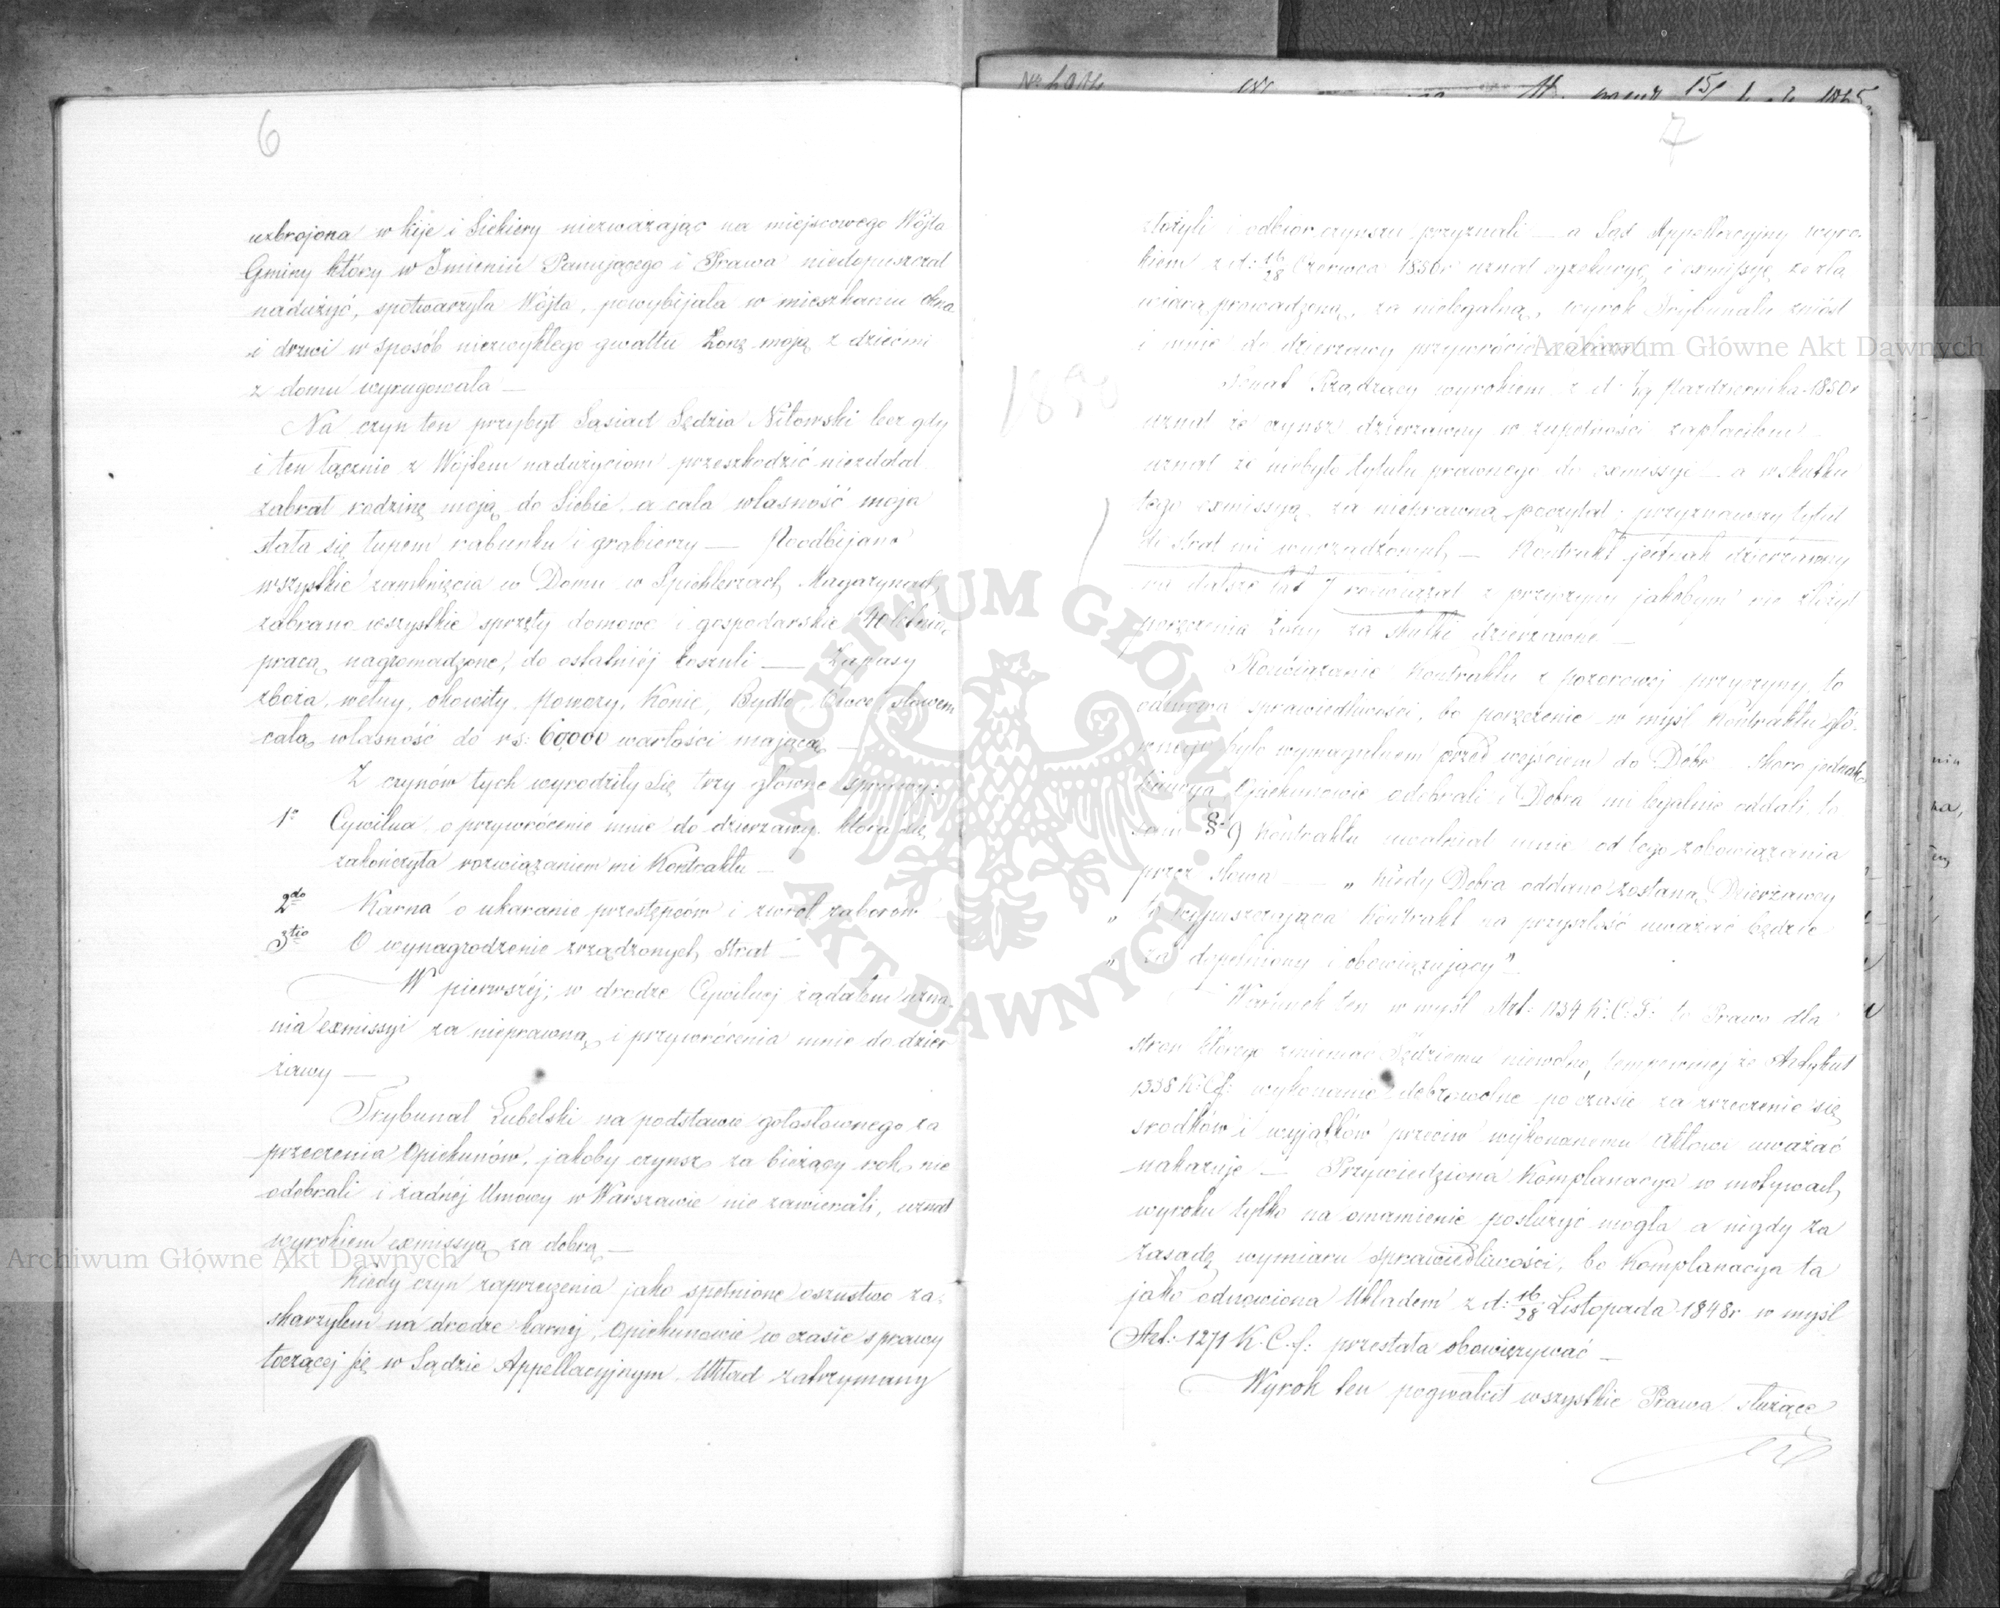 6
uzbrojona w kije i Siekiery niezważając na miejscowego Wójta
Gminy który w Imieniu Panującego i Prawa niedopuszczał
nadużyć, spotwarzyła Wójta, powybijała w mieszkaniu okna
i drzwi w sposób niezwykłego gwałtu Żonę moją z dziećmi
z domu wyrugowała —
Na czyn ten przybył Sąsiad Sędzia Nitowski lecz gdy
i ten łącznie z Wójtem nadużyciom przeszkodzić niezdołał
zabrał rodzinę moją do Siebie, a cała własność moja
stała się łupem rabunku i grabieży — Poodbijano
wszystkie zamknięcia w Domu w Spichlerzach, Magazynach,
zabrano wszystkie sprzęty domowe i gospodarskie 40 letnią
pracą nagromadzone, do ostatniéj koszuli — Zapasy
zboża, wełny, okowity, powozy, Konie, Bydło, Owce, słowem
całą własność do rs: 60000 wartości mającą —
Z czynów tych wyrodziły się trzy główne sprawy:
1º Cywilna, o przywrócenie mnie do dzierżawy, która się
zakończyła rozwiązaniem mi Kontraktu —
2do Karna o ukaranie przestępców i zwrot zaborów —
3tio O wynagrodzenie zrządzonych strat —
W pierwszéj, w drodze Cywilnej żądałem uzna-
nia exmissyi za nieprawną, i przywrócenia mnie do dzier
żawy —
Trybunał Lubelski na podstawie gołosłownego za
przeczenia Opiekunów, jakoby czynsz za bieżący rok nie
odebrali i żadnéj Umowy w Warszawie nie zawierali, uznał
wyrokiem exmissyą za dobrą —
Kiedy czyn zaprzeczenia jako spełnione oszustwo za-
skarżyłem na drodze karnéj, Opiekunowie w czasie sprawy
toczącej się w Sądzie Appellacyjnym, Układ zatrzymany
7
złożyli i odbiór czynszu przyznali — a Sąd Appellacyjny wyro-
kiem z d: 16/28 Czerwca 1850r uznał exekucyę i exmissyę ze złą
wiarą prowadzoną, za nielegalną, wyrok Trybunału zniósł
i mnie do dzierżawy przywrócić
1850
Senat Rządzący wyrokiem z d: Października 1850r
uznał że czynsz dzierżawny w zupełności zapłaciłem —
uznał że niebyło tytułu prawnego do exmissyi — a wskutku
tego exmissyą za nieprawną poczytał; przyznawszy tytuł
do strat mi wyrządzonych — Kontrakt jednak dzierżawny
na dalsze lat 7 rozwiązał z przyczyny jakobym nie złożył
poręczenia Żony za skutki dzierżawne —
Rozwiązanie Kontraktu z pozorowej przyczyny, to
odmowa sprawiedliwości, bo poręczenie w myśl Kontraktu głó-
wnego było wymagalnem przed wejściem do Dóbr — skoro jednak
Kaucyą Opiekunowie odebrali i Dobra mi legalnie oddali, to
sam § 9 Kontraktu uwalniał mnie od tego zobowiązania
przez słowa — „ kiedy Dobra oddane zostaną Dzierżawcy
„ to wypuszczająca Kontrakt na przyszłość uważać będzie
„ za dopełniony i obowiązujący” —
Warunek ten w myśl Art: 1134 K: C: F: to Prawo dla
stron którego zmieniać Sędziemu niewolno, temwięcej że Artykuł
1338 K: C f: wykonanie dobrowolne po czasie za zrzeczenie się
srodków i wyjątków przeciw wykonanemu aktowi uważać
nakazuje — Przywiedziona Komplanacya w motywach,
wyroku tylko na omamienie posłużyć mogła a nigdy za
zasadę wymiaru sprawiedliwości, bo Komplanacya ta
jako odnowiona Układem z d: 16/28 Listopada 1848r w myśl
Art: 1271 K. C. f: przestała obowiązywać —
Wyrok ten pogwałcił wszystkie Prawa służące
Archiwum Główne Akt Dawnych
Archiwum Główne Akt Dawnych
· ARCHIWUM GŁÓWNE · AKT DAWNYCH